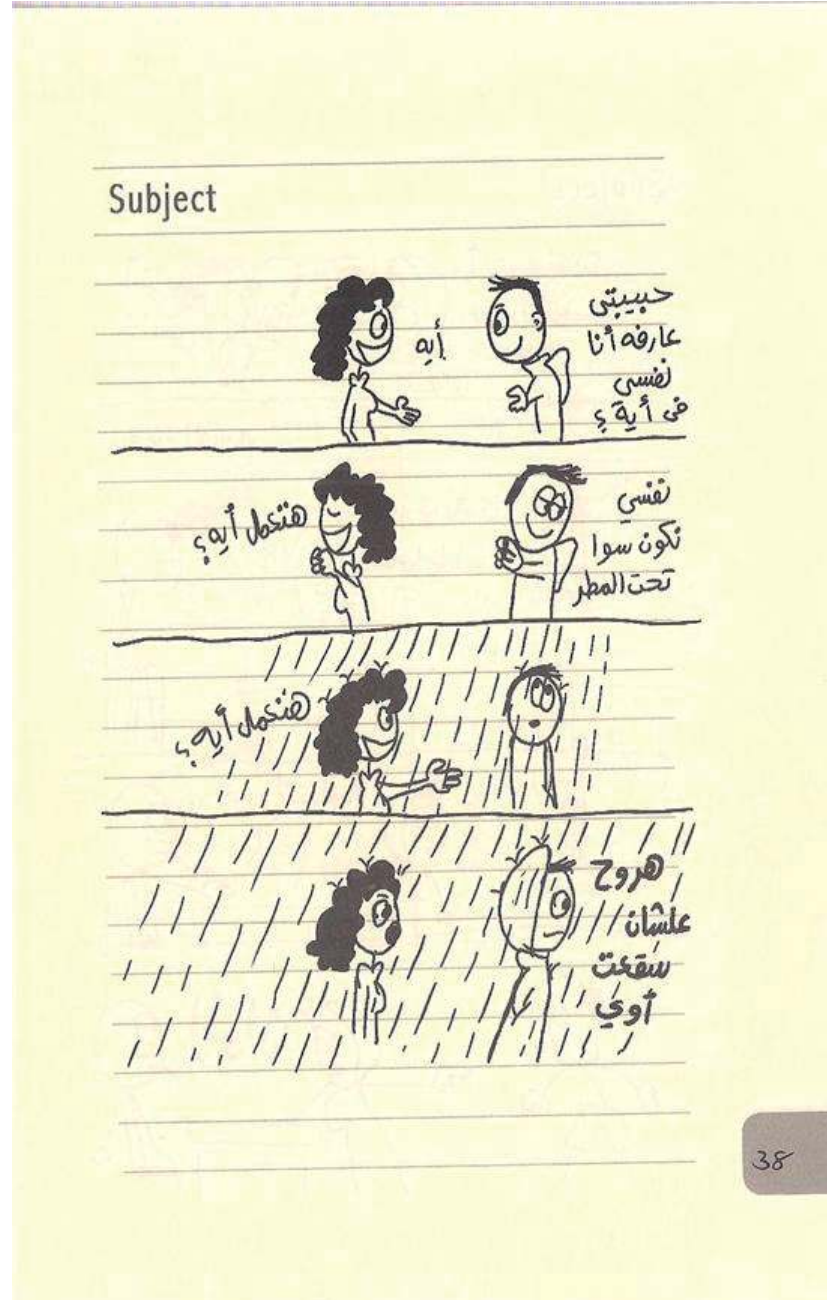 Subject
حبيبتي
عارفه أنا
نفسي
في أية ؟
أيه
نفسي
نكون سوا
تحت المطر
هتعمل أيه ؟
هتعمل أيه ؟
هروح
علشان
سقعت
أوي
38